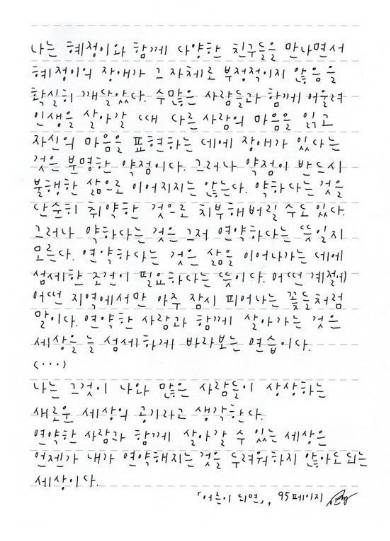 나는 혜정이와 함께 다양한 친구들을 만나면서
혜정이의 장애가 그 자체로 부정적이지 않음을
확실히 깨달았다. 수많은 사람들과 함께 어울려
인생을 살아갈 때 다른 사람의 마음을 읽고
자신의 마음을 표현하는 데에 장애가 있다는
것은 분명한 약점이다. 그러나 약점이 반드시
불행한 삶으로 이어지지는 않는다. 약하다는 것을
단순히 취약한 것으로 치부해버릴 수도 있다.
그러나 약하다는 것은 그저 연약하다는 뜻일지
모른다. 연약하다는 것은 삶을 이어나가는 데에
섬세한 조건이 필요하다는 뜻이다. 어떤 계절에
어떤 지역에서만 아주 잠시 피어나는 꽃들처럼
말이다. 연약한 사람과 함께 살아가는 것은
세상을 늘 섬세하게 바라보는 연습이다.
(···)
나는 그것이 나와 많은 사람들이 상상하는
새로운 세상의 공기라고 생각한다.
연약한 사람과 함께 살아갈 수 있는 세상은
언젠가 내가 연약해지는 것을 두려워하지 않아도 되는
세상이다.
「어른이 되면」, 95페이지